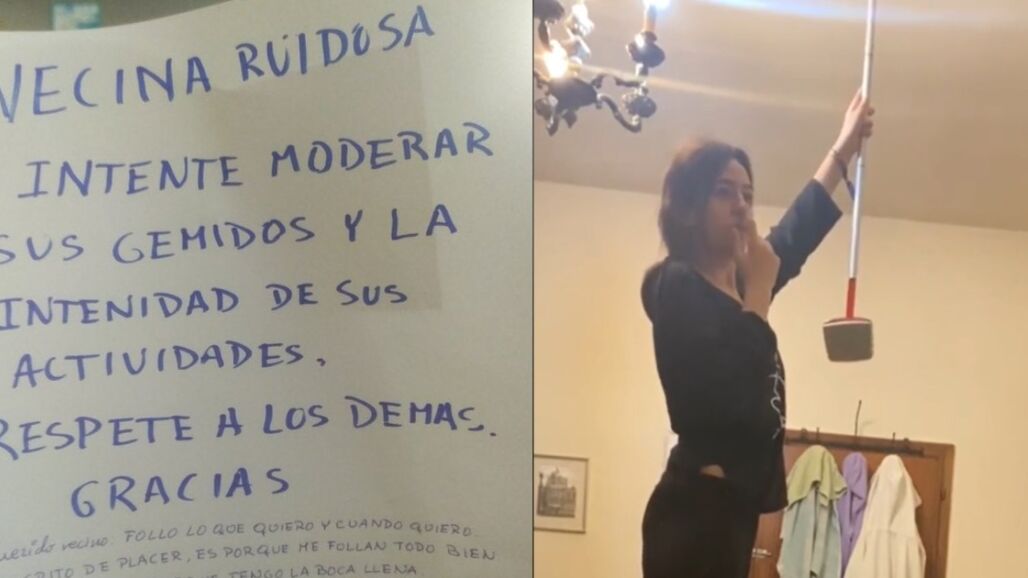 VECINA RUIDOSA
INTENTE MODERAR
SUS GEMIDOS Y LA
INTENIDAD DE SUS
ACTIVIDADES.
RESPETE A LOS DEMAS.
GRACIAS
querido vecino: FOLLO LO QUE QUIERO Y CUANDO QUIERO.
GRITO DE PLACER, ES PORQUE ME FOLLAN TODO BIEN
TENGO LA BOCA LLENA.